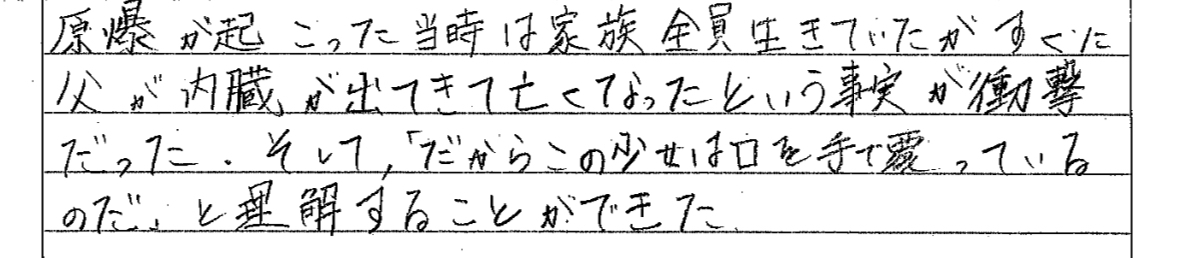 原爆が起こった当時は家族全員生きていたがすぐに
父が内臓が出てきて亡くなったという事実が衝撃
だった.そして,「だからこの少女は口を手で覆っている
のだ」と理解することができた.